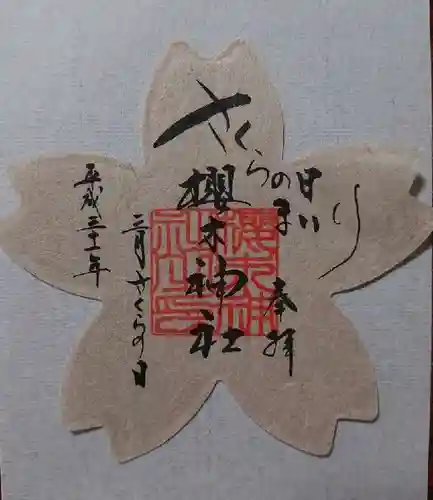 さくらの日まいり
奉拝
櫻木神社
櫻木神社印
平成三十一年
三月さくらの日